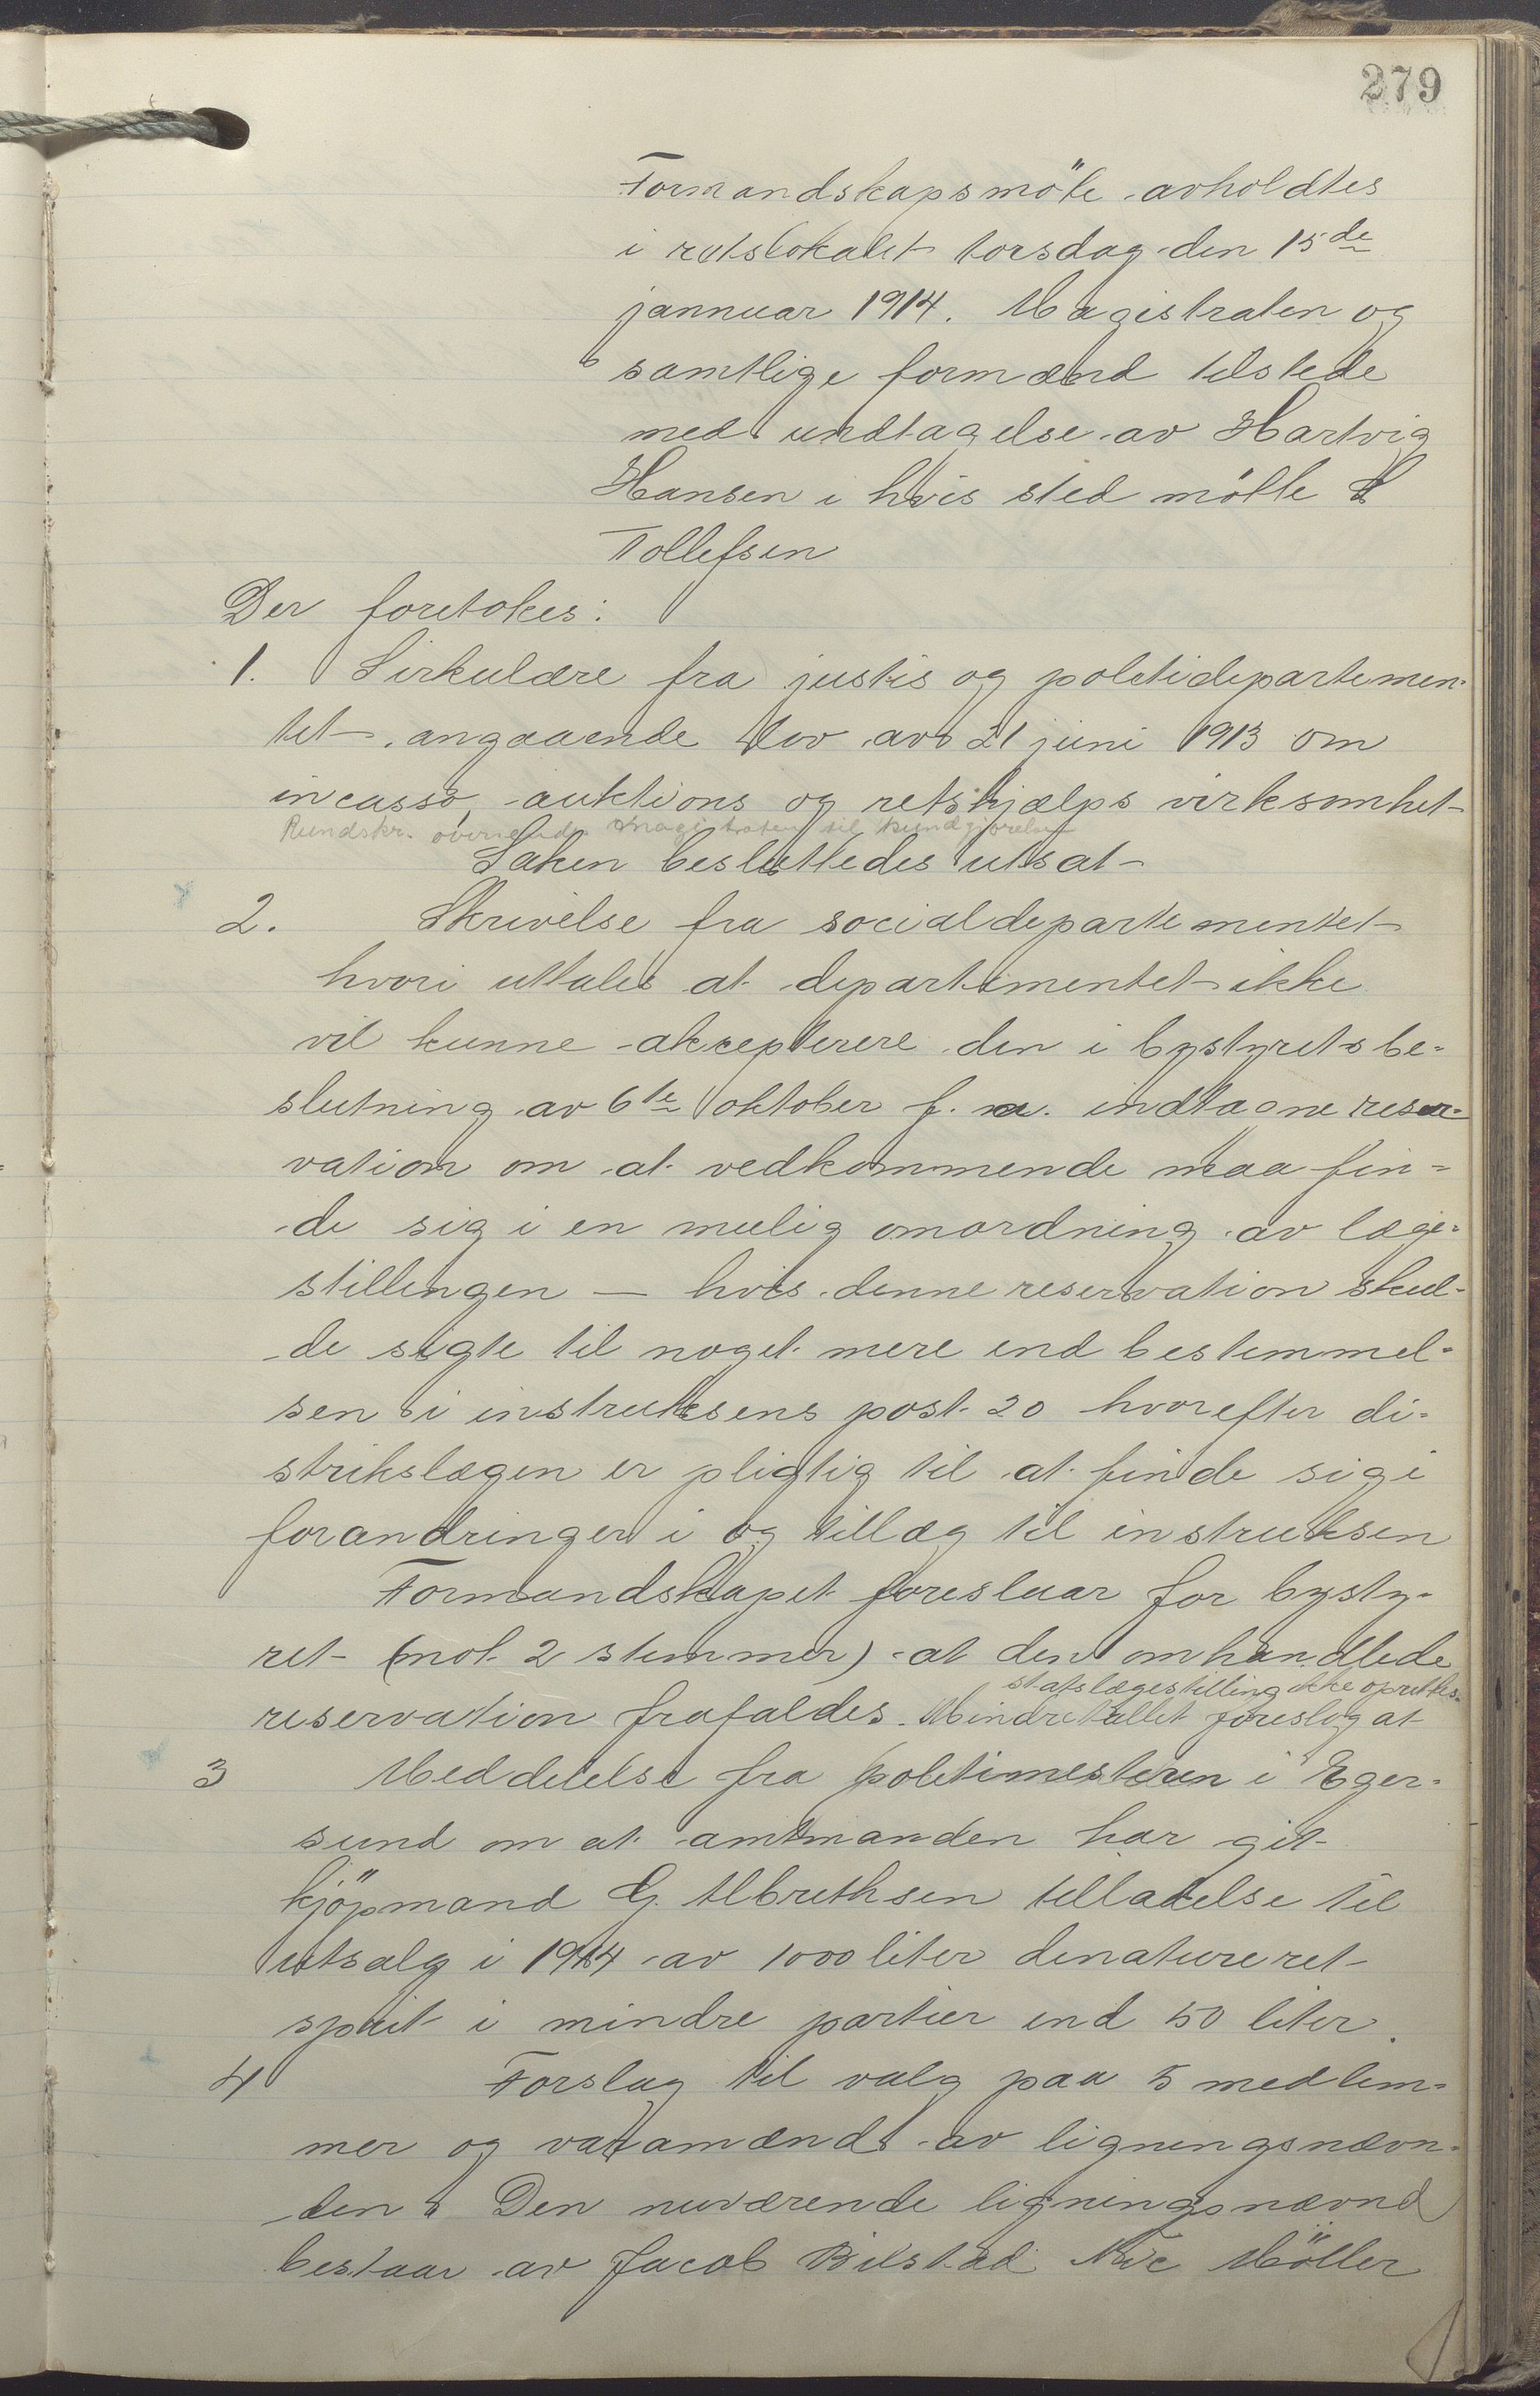 279
Formandskapsmöte avholdtes
i retslokalet torsdag den 15de
jannuar 1914. Magistraten og
samtlige formænd tilstede
med undtagelse av Hartvig
Hansen i hvis sted mötte
Tollefsen
Der foretokes:
1. Sirkulære fra justis og politidepartemen-
tet angaaende lov av 21 juni 1913 om
incasso, auktions og retshjælps virksomhet
Rundskr. oversend. magistraten til kundgjörelse
Saken besluttedes utsat
2. Skrivelse fra socialdepartementet
hvori uttales at departementet ikke
vil kunne akcepterere den i bystyrets be-
slutning av 6te oktober f. a. indtagne reser-
vation om at vedkommende maa fin-
de sig i en mulig omordning av læge-
stillingen — hvis denne reservation skul-
de sigte til noget mere end bestemmel-
sen i instruksens post 20 hvorefter di-
strikslægen er pligtig til at finde sig i
forandringer i og tillæg til instruksen
Formandskapet foreslaar for bysty-
ret (mot 2 stemmer) at den omhandlede
statslægestilling ikke oprettes.
reservation frafaldes. Mindretallet foreslog at
3 Meddelelse fra politimesteren i Eger-
sund om at amtmanden har git
kjöpmand G. Albrethsen tilladelse til
utsalg i 1914 av 1000 liter denatureret
sprit i mindre partier end 50 liter.
4 Forslag til valg paa 5 medlem-
mer og varamænd av ligningsnævn-
den. Den nuværende ligningsnævnd
bestaar av Jacob Bilstad Nic Möller